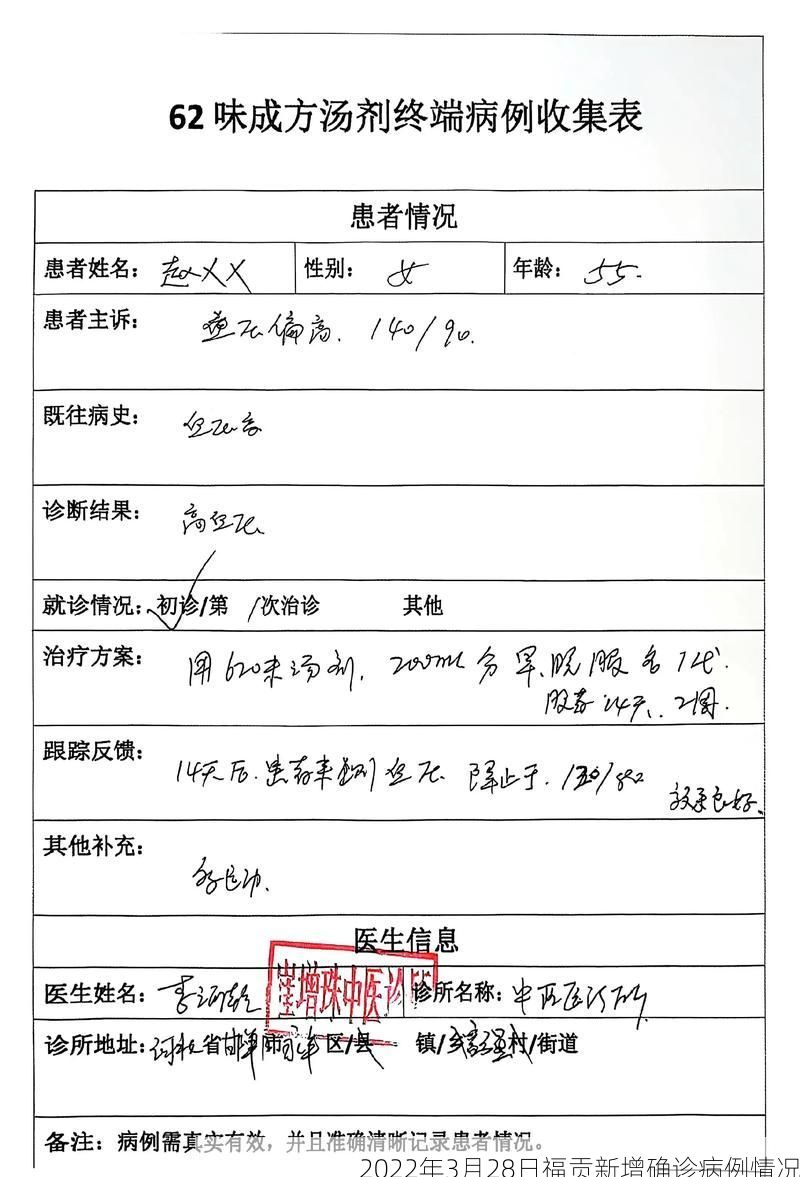 62味成方汤剂终端病例收集表
患者情况
患者姓名： 赵XX 性别： 女 年龄： 55.
患者主诉： 血压偏高. 140/90.
既往病史： 血压高
诊断结果： 高血压
就诊情况：初诊/第 /次治诊 其他
治疗方案： 用62味汤剂, 200ml 分早、晚服各1袋.
服药14天、2周.
跟踪反馈： 14天后.患者来测血压 降止于.
效果良好.
其他补充：
医生信息
医生姓名： 李 诊所名称：中医诊所
崔增珠中医诊所
诊所地址：河北省邯郸市 区/县 镇/乡 村/街道
备注：病例需真实有效，并且准确清晰记录患者情况。
2022年3月28日福贡新增确诊病例情况